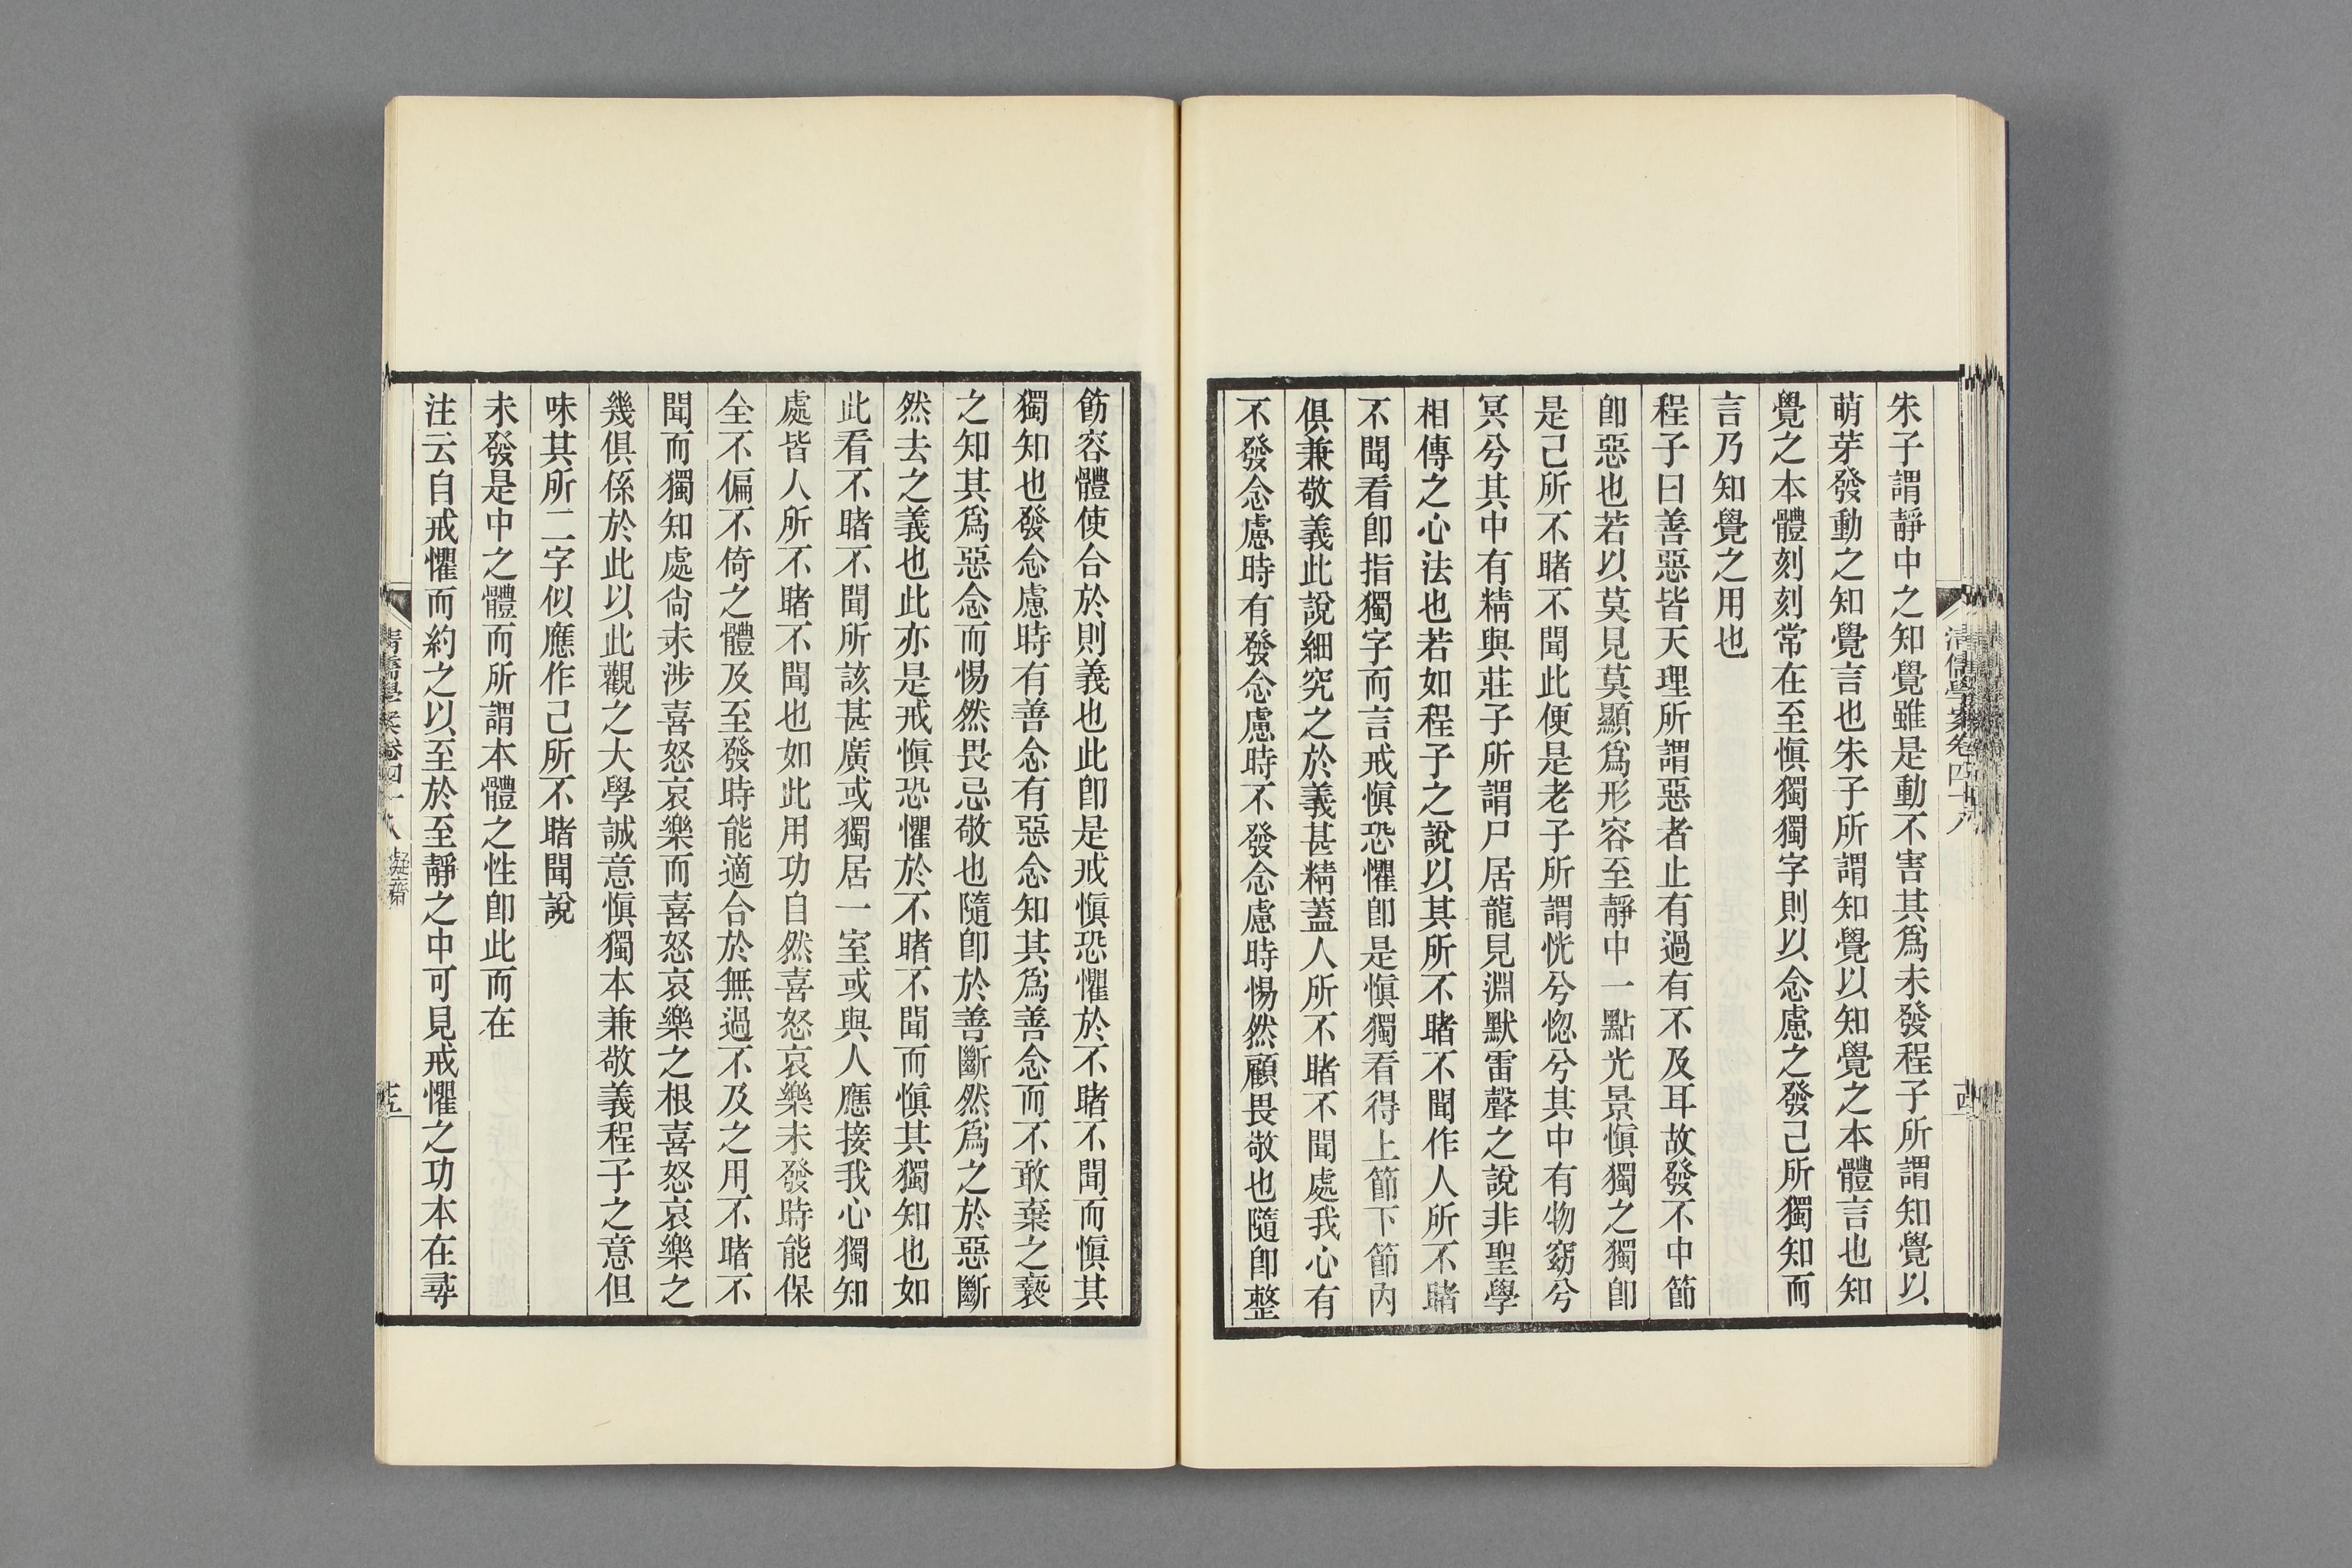 朱子謂靜中之知覺雖是動不害其爲未發程子所謂知覺以
萌芽發動之知覺言也朱子所謂知覺以知覺之本體言也知
覺之本體刻刻常在至愼獨獨字則以念慮之發己所獨知而
言乃知覺之用也
程子曰善惡皆天理所謂惡者止有過有不及耳故發不中節
卽惡也若以莫見莫顯爲形容至靜中一點光景愼獨之獨卽
是己所不睹不聞此便是老子所謂恍兮惚兮其中有物窈兮
冥兮其中有精與莊子所謂尸居龍見淵默雷聲之說非聖學
相傳之心法也若如程子之說以其所不睹不聞作人所不睹
不聞看卽指獨字而言戒愼恐懼卽是愼獨看得上節下節內
俱兼敬義此說細究之於義甚精蓋人所不睹不聞處我心有
不發念慮時有發念慮時不發念慮時惕然顧畏敬也隨卽整
清儒學案卷四十八
十四
飭容體使合於則義也此卽是戒愼恐懼於不睹不聞而愼其
獨知也發念慮時有善念有惡念知其爲善念而不敢棄之褻
之知其爲惡念而惕然畏忌敬也隨卽於善斷然爲之於惡斷
然去之義也此亦是戒愼恐懼於不睹不聞而愼其獨知也如
此看不睹不聞所該甚廣或獨居一室或與人應接我心獨知
處皆人所不睹不聞也如此用功自然喜怒哀樂未發時能保
全不偏不倚之體及至發時能適合於無過不及之用不睹不
聞而獨知處尙未涉喜怒哀樂而喜怒哀樂之根喜怒哀樂之
幾俱係於此以此觀之大學誠意愼獨本兼敬義程子之意但
味其所二字似應作己所不睹聞說
未發是中之體而所謂本體之性卽此而在
注云自戒懼而約之以至於至靜之中可見戒懼之功本在尋
清儒學案卷四十八 凝齋
十五